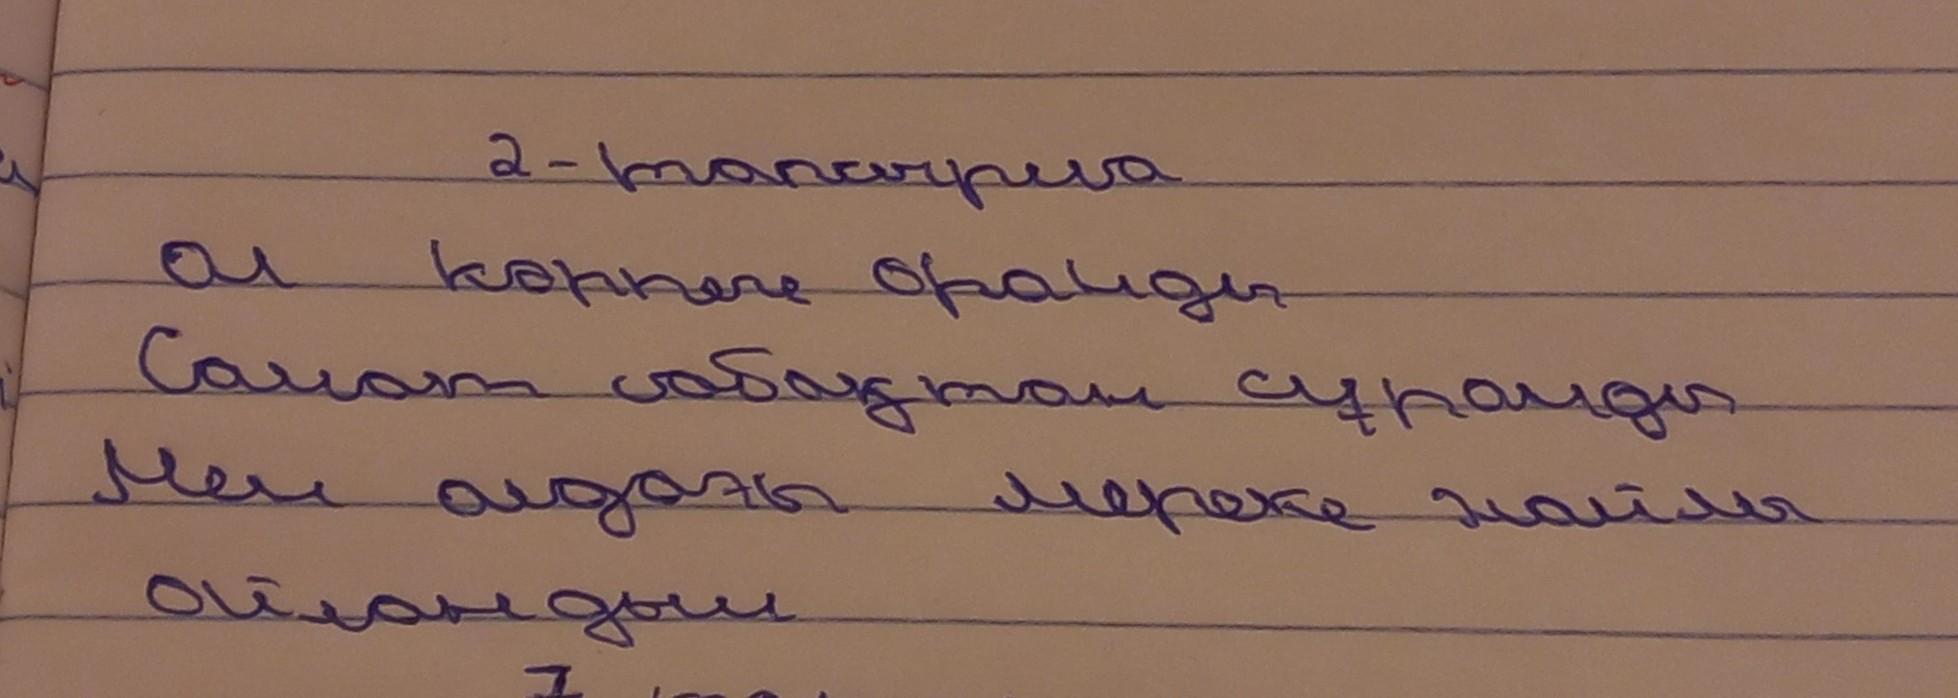 2-тапсырма
Ол көрпеге оранды
Самат сабақтан сұранды
Мен алдағы мереке жайлы
ойландым
7